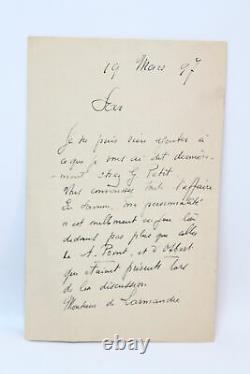 19 Mars 97
Je ne puis rien ajouter à
ce que je vous ai dit dernière-
ment chez G. Petit
Vous connaissez toute l'affaire
En somme, ma personnalité
n'est nullement en jeu là
dedans pas plus que celles
de A. Point, et d'Osbert
qui étaient présents lors
de la discussion
Monsieur de Larmandie
thumbimg.com